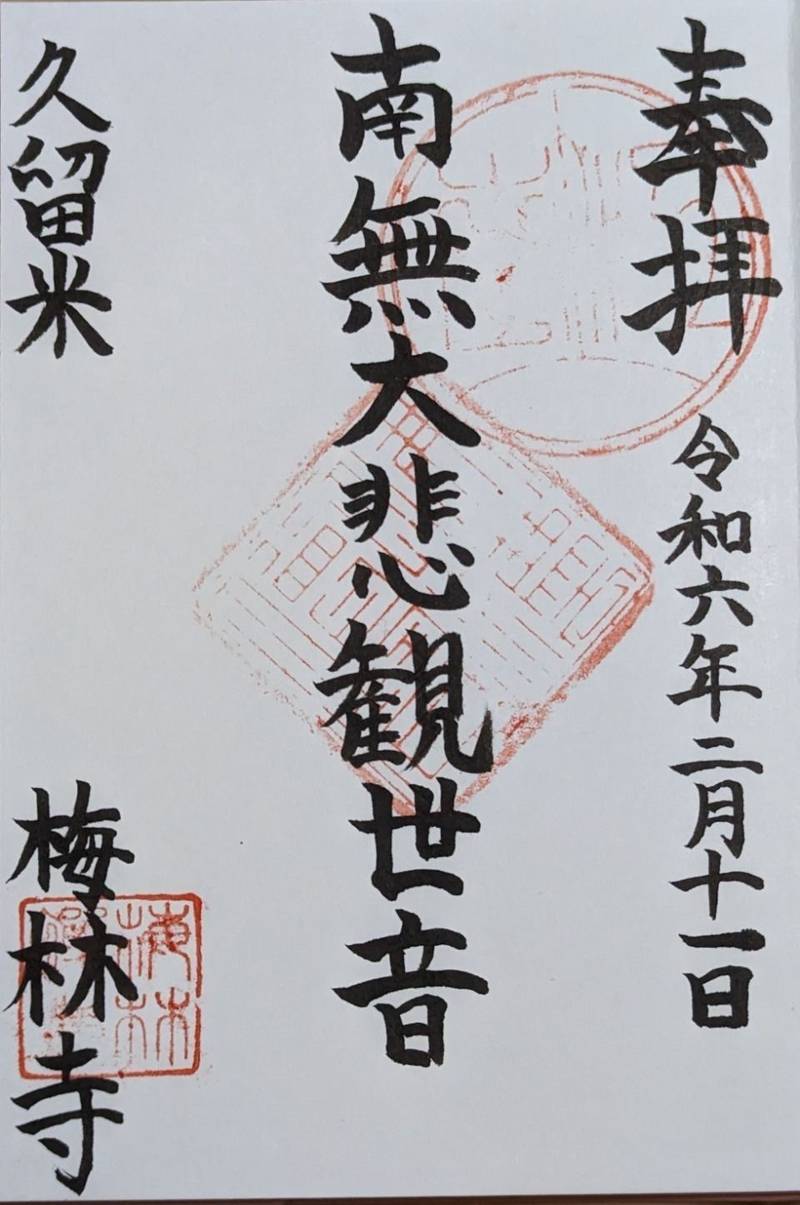 奉拝
令和六年二月十一日
南無大悲観世音
久留米
梅林寺
梅林